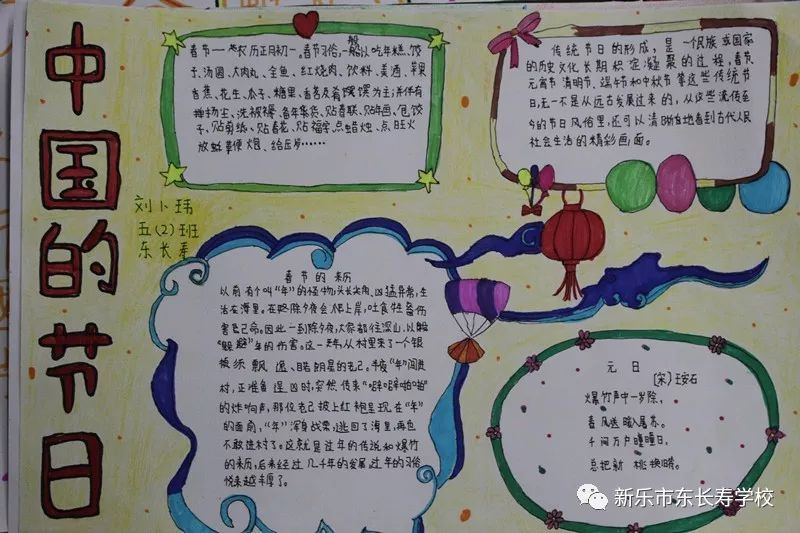 中国的节日
春节一般农历正月初一。春节习俗,一般以吃年糕、饺
子、汤圆、大肉丸、全鱼、红烧肉、饮料、美酒、苹果
香蕉、花生、瓜子、糖果、香茗及肴馔为主;并伴有
掸扬尘、洗被褥、备年货、贴春联、贴年画、包饺
子、贴剪纸、贴春花、贴福字、点蜡烛、点旺火
放鞭炮、给压岁……
传统节日的形成,是一个民族或国家
的历史文化长期积淀凝聚的过程,春节、
元宵节清明节、端午节和中秋节等这些传统节
日,无一不是从远古发展过来的,从这些流传至
今的节日风俗里,还可以清晰地看到古代人民
社会生活的精彩画面。
刘卜玮
五(2)班
东长寿
春节的来历
以前有个叫“年”的怪物,头长尖角、凶猛异常,生
活在海里。在除夕夜会爬上岸,吐食牲畜伤
害百姓命。因此一到除夕夜,大家都往深山,以躲
“躲避”年的伤害。这一天,从村里来了一个银
须飘逸、眼朗星的老己。半夜“年”闯进
村,正准备逞凶时,突然传来“啪啪”
的炸响声,那位老己披上红袍呈现在“年”
的面前,“年”浑身战栗,逃回了海里,再也
不敢进村了。这就是过年的传说和爆竹
的来历,后来经过几千年的发展,过年的习俗
越来越丰厚了。
元日
〔宋〕王安石
爆竹声中一岁除,
春风送暖入屠苏。
千间万户瞳瞳日,
总把新桃换旧。
新乐市东长寿学校